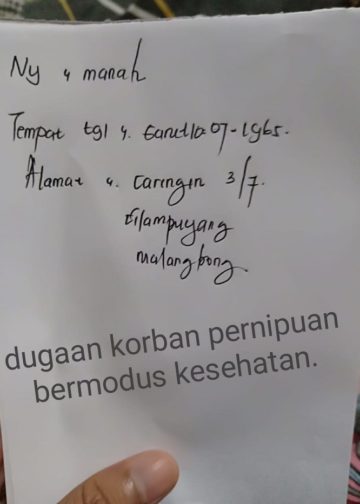 Ny : manah
Tempat tgl : Garut 10-07-1965.
Alamat : Caringin 3/7.
Cilampuyang
malangbong.
dugaan korban pernipuan
bermodus kesehatan.